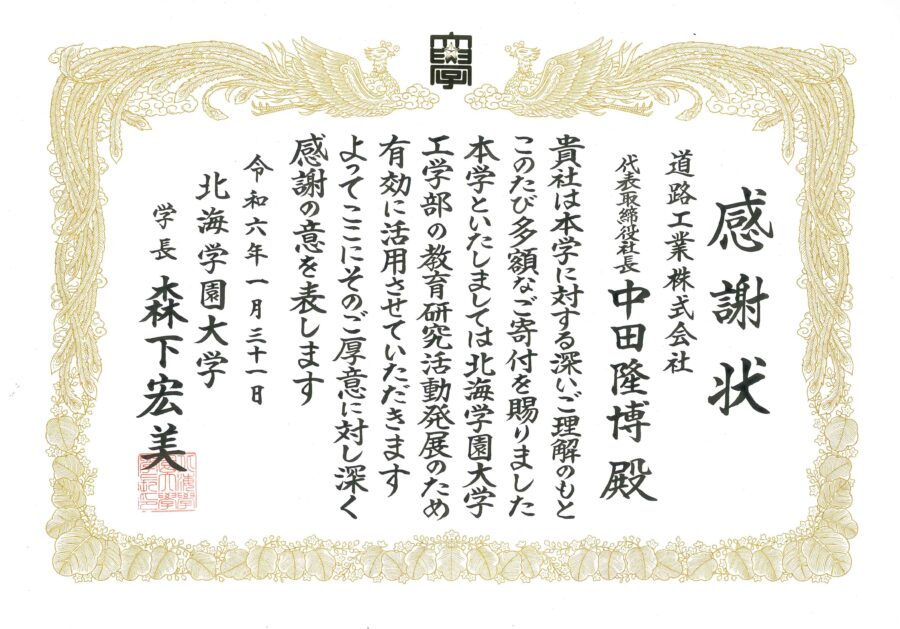 感謝状
道路工業株式会社
代表取締役社長 中田隆博 殿
貴社は本学に対する深いご理解のもと
このたび多額なご寄付を賜りました
本学といたしましては北海学園大学
工学部の教育研究活動発展のため
有効に活用させていただきます
よってここにそのご厚意に対し深く
感謝の意を表します
令和六年一月三十一日
北海学園大学
学長 森下宏美